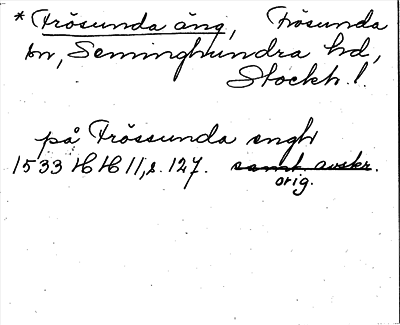 * Frösunda äng, Frösunda
sn, Seminghundra hd,
Stockh. l.
på Frössunda engh
1533 HH II, s. 127. samt. avskr.
orig.